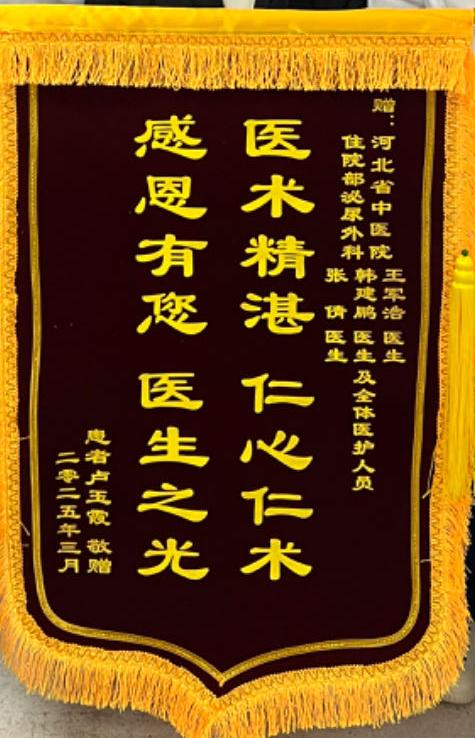 赠：河北省中医院
住院部泌尿外科
王军浩 医生
韩建鹏 医生及全体医护人员
张 倩 医生
医术精湛 仁心仁术
感恩有您 医生之光
患者卢玉霞 敬赠
二零二五年三月